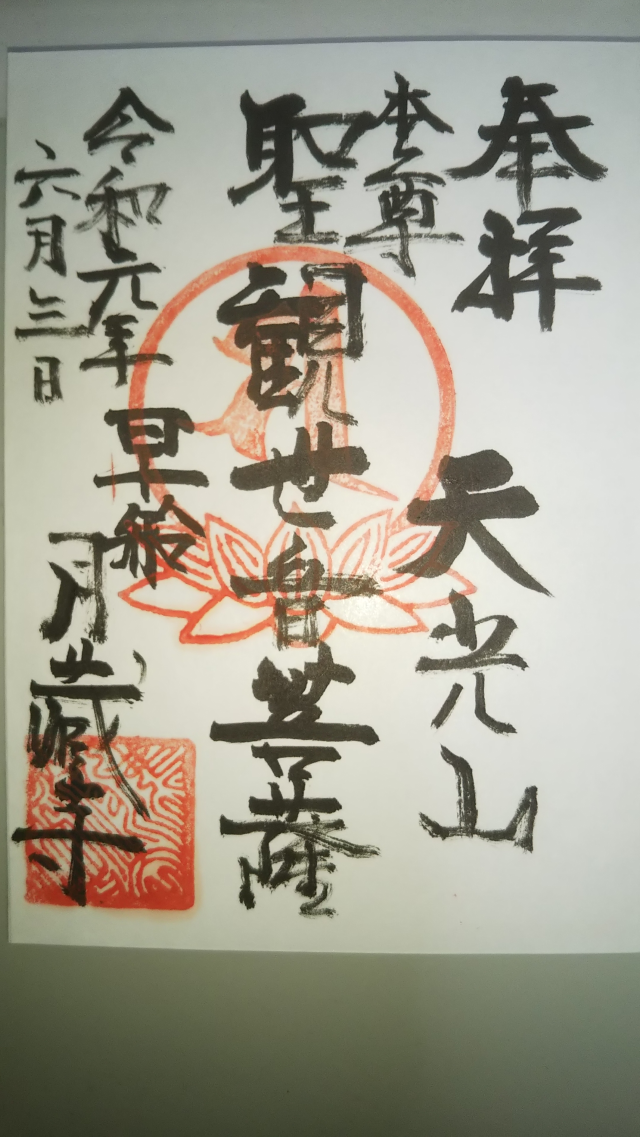 奉拝
天光山
本尊
聖観世音菩薩
令和元年
六月三日
月蔵寺